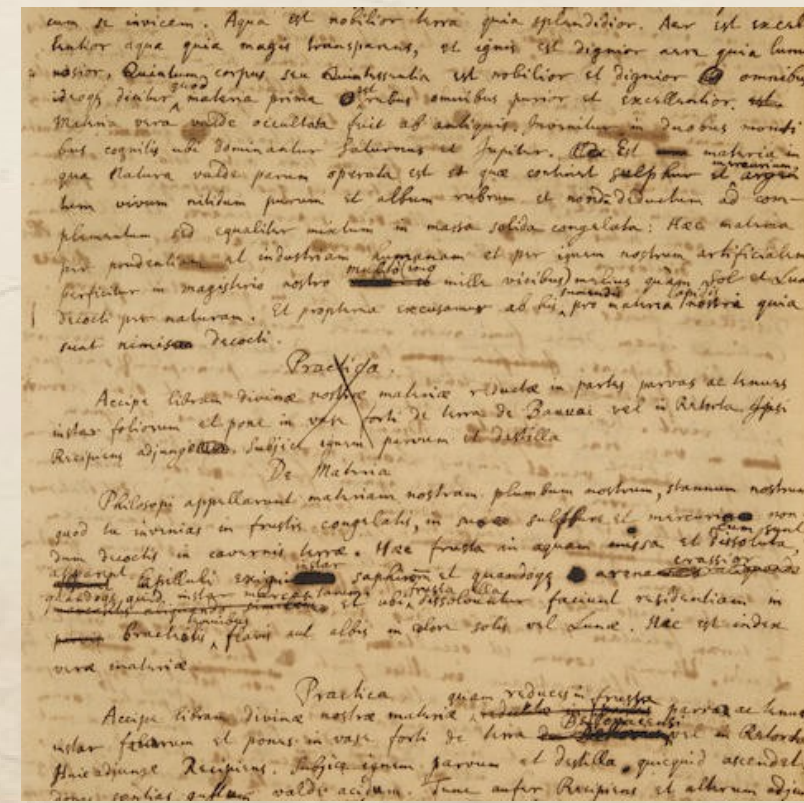 cum se invicem. Aqua est nobilior terra quia splendidior. Aer est excel
lentior aqua quia magis transparens, et ignis est dignior aere quia lumi
nosior. Quintum corpus seu Quintessentia est nobilior et dignior omnibus
ideoq dicitur quod materia prima est rebus omnibus purior et excellentior.
Materia vera valde occultata fuit ab antiquis. Invenitur in duobus monti
bus cognitis ubi dominantur Saturnus et Jupiter. Est materia in
qua Natura valde parum operata est et quæ continet sulphur et mercurium argen
tum vivum nitidum purum et album rubrum et nondum deductum ad com-
plementum sed equaliter mixtum in massa solida congelata: Hæc materia
per prudentiam et industriam humanam et per ignem nostrum artificialem
perficitur in magisterio nostro mille vicibus) melius quam Sol et Lun
decocti per naturam. Et propterea excusamur ab his sumendis pro materia lapidis nostra quia
sunt nimis decocti.
Practica.
Accipe libram divinæ nostræ materiæ reductæ in partes parvas ac tenues
instar foliorum et pone in vase forti de terra de vel in Retorta
Recipiens adjunge. Subjice ignem parvum et distilla
De Materia
Philosopi appellarunt materiam nostram plumbum nostrum, stannum nostrum
quod tu invenias in frustis congelatis, in suo sulphure et mercurio non
dum decoctis in cavernis terræ. Hæc frusta in aquam missa et cum sunt dissoluta,
apparent capilluli exigui instar saphirorum et quandoq arenæ crassior
quandoq quid instar et ubi frusta illa dissolvuntur faciunt residentiam in
bracteolis tenuibus flavis aut albis in colore solis vel Lunæ. Hæc est index
veræ materiæ
Practica
Accipe libram divinæ nostræ materiæ quam reduces in frusta parva ac tenua
instar foliorum et pones in vase forti de terra vel in Retorta
Huic adjunge Recipiens. Subjice ignem parvum et distilla quicquid ascendet
donec sentias gustum valde acidum. Tunc aufer Recipiens et alterum adju